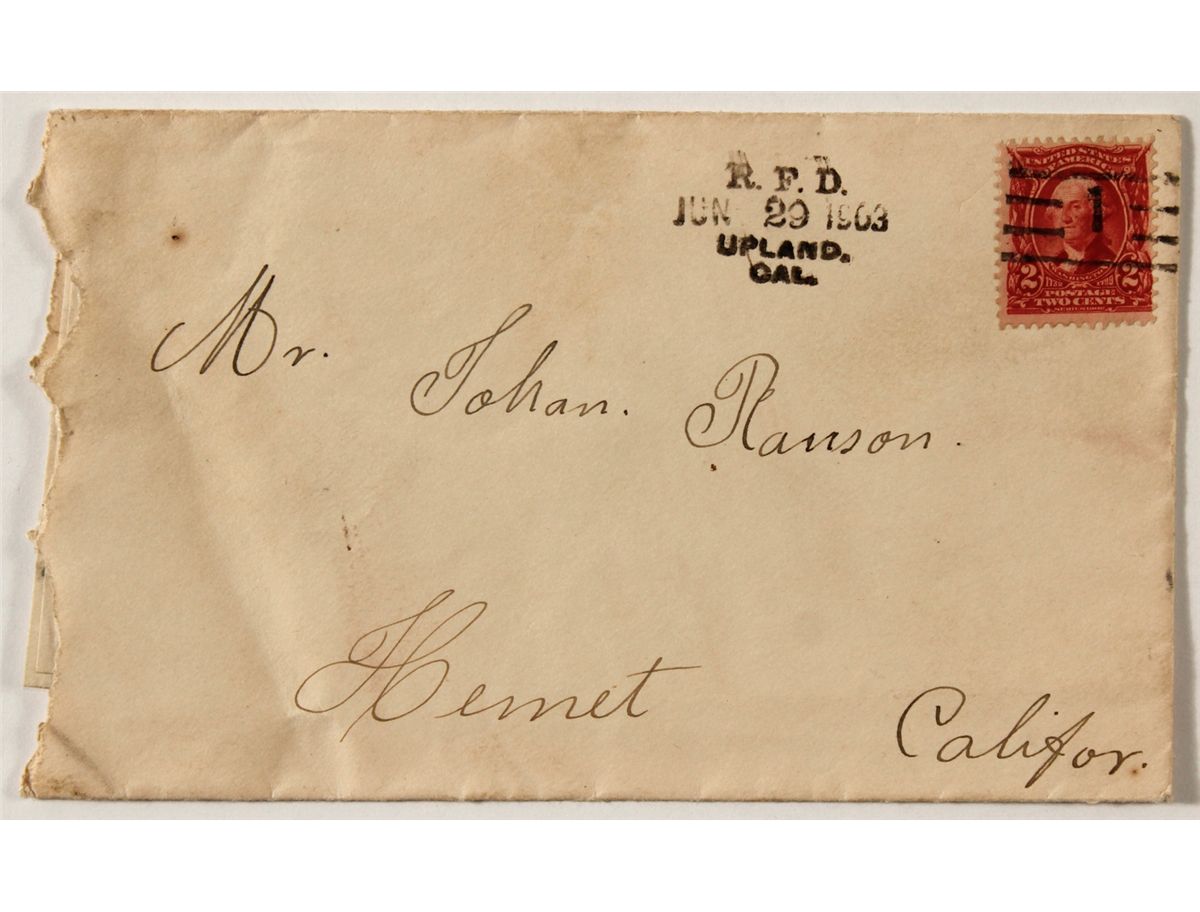 R. F. D.
JUN 29 1903
UPLAND.
CAL.
UNITED STATES
OF AMERICA
1
2 2
POSTAGE
TWO CENTS
Mr. Johan. Ranson.
Hemet
Califor.